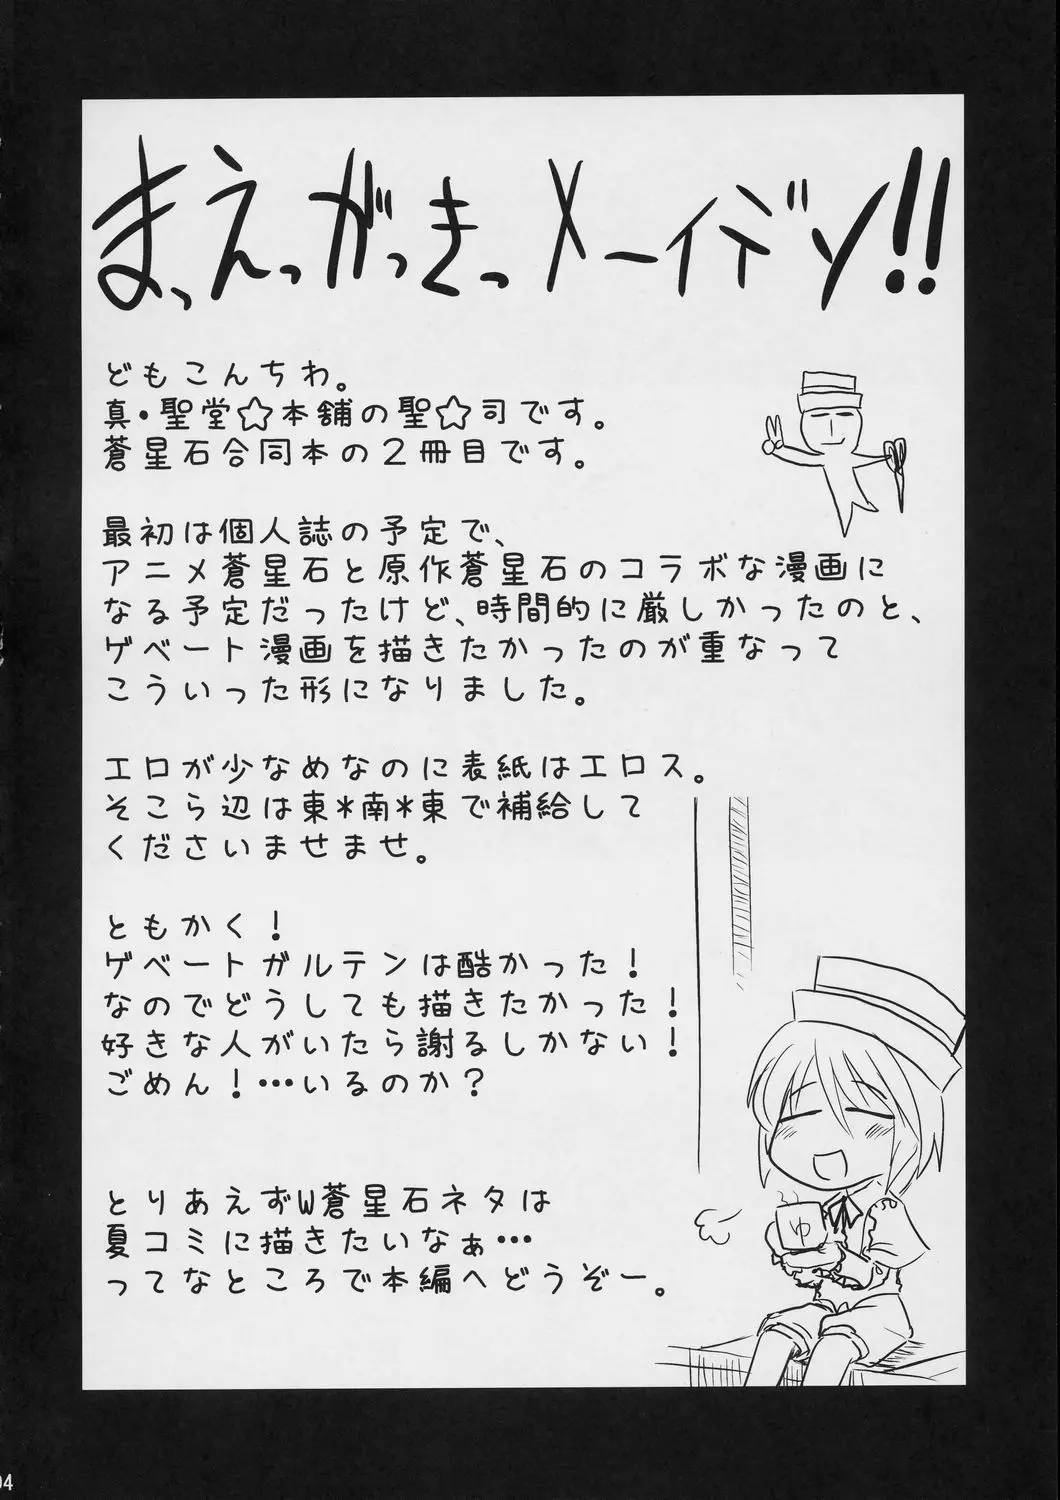 まっえっがっきっメーイデソ!!
どもこんちわ。
真・聖堂☆本舗の聖☆司です。
蒼星石合同本の2冊目です。
最初は個人誌の予定で、
アニメ蒼星石と原作蒼星石のコラボな漫画に
なる予定だったけど、時間的に厳しかったのと、
ゲベート漫画を描きたかったのが重なって
こういった形になりました。
エロが少なめなのに表紙はエロス。
そこら辺は東*南*東で補給して
くださいませませ。
ともかく!
ゲベートガルテンは酷かった!
なのでどうしても描きたかった!
好きな人がいたら謝るしかない!
ごめん!…いるのか?
とりあえずW蒼星石ネタは
夏コミに描きたいなぁ…
ってなところで本編へどうぞー。
ゆ
04